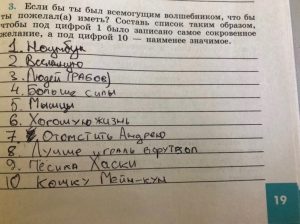 3. Если бы ты был всемогущим волшебником, что бы
ты пожелал(а) иметь? Составь список таким образом,
чтобы под цифрой 1 было записано самое сокровенное
желание, а под цифрой 10 — наименее значимое.
1. Ноутбук
2 Вселенную
3. Людей (РАБОВ)
4. Больше силы
5. Мышцы
6. Хорошую жизнь
7 Отомстить Андрею
8. Лучше играль в футбол
9. Пёсика Хаски
10 Кошку Мейн-кун
19